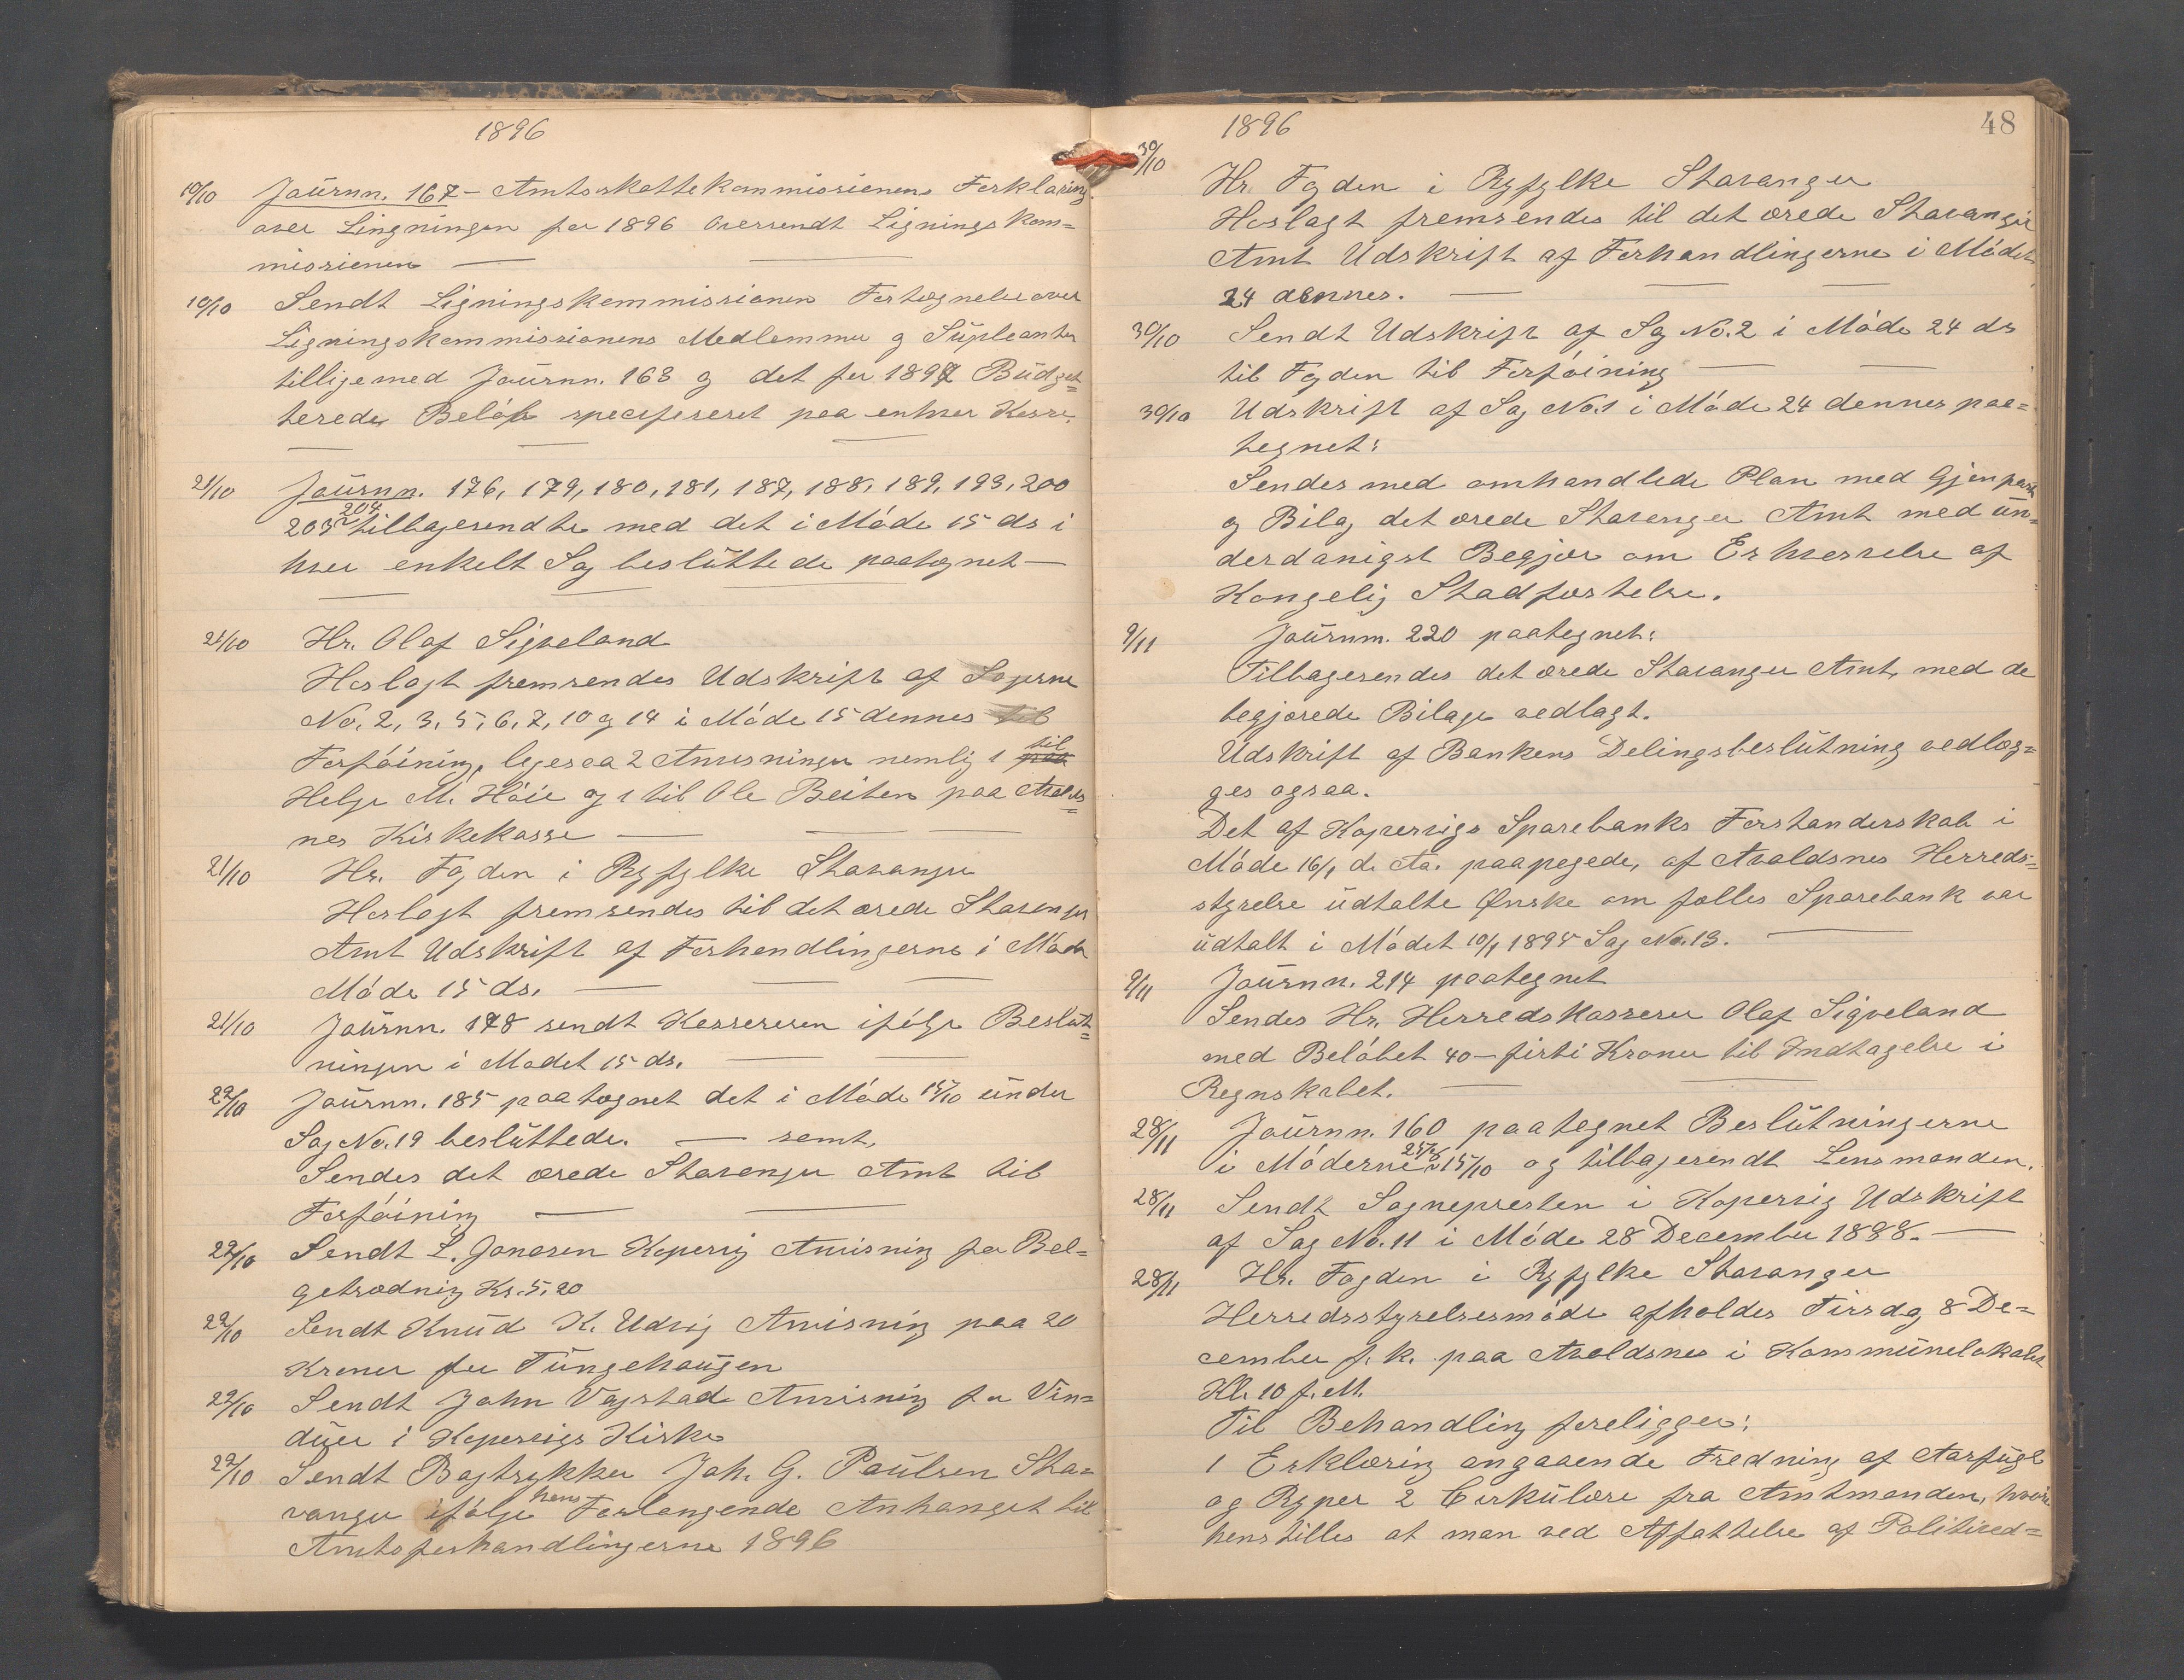 1896
10/10 Journn. 167 - Amtsskattekommissionens Forklaring
over Lingningen for 1896 oversendt Lignings kom=
missionen
10/10 Sendt Ligningskommissionen Fortegnelse over
Ligningskommissionens Medlemmer og Supleanter
tilligemed Journn. 163 og det for 1897 Budget=
terede Beløb specifiseret paa enhver Kasse.
21/10 Journn. 176, 179, 180, 181, 187, 188, 189, 193, 200
203 204 tilbagesendte med det i Møde 15 ds i
hver enkelt Sag besluttede paategnet
21/10 Hr. Olaf Sigveland
Heslagt fremsendes Udskrift af Sagerne
No. 2, 3, 5, 6, 7, 10 og 14 i Møde 15 dennes til
Forføining, ligesaa 2 Anvisninger nemlig 1 paa til
Helge M. Høie og 1 til Ole Beiten paa Avalds=
nes Kirkekasse
21/10 Hr. Fogden i Ryfylke Stavanger
Heslagt fremsendes til det ærede Stavanger
Amt Udskrift af Forhandlingerne i Møde
Møde 15 ds.
21/10 Journn. 178 sendt Kassereren ifølge Beslut=
ningen i Mødet 15 ds.
22/10 Journn. 185 paategnet det i Møde 15/10 under
Sag No. 19 besluttede. samt
Sendes det ærede Stavanger Amt til
Forføining
22/10 Sendt L. Jonasen Kopervig Anvisning for Bæl=
getrædning Kr. 5,20
22/10 Sendt Knud K. Udvig Anvisning paa 20
Kroner for Tungehaugen
22/10 Sendt John Vagstad Anvisning for Vin=
duer i Kopervigs Kirke
22/10 Sendt Bogtrykker Joh. G. Paulsen Sta=
vanger ifølge hans Forlangende Anhanget til
Amtsforhandlingerne 1896
48
1896
30/10 Hr. Fogden i Ryfylke Stavanger
Heslagt fremsendes til det ærede Stavanger
Amt Udskrift af Forhandlingerne i Mødet
24 dennes.
30/10 Sendt Udskrift af Sag No. 2 i Møde 24 ds
til Fogden til Forføining
30/10 Udskrift af Sag No. 1 i Møde 24 dennes paa=
tegnet:
Sendes med omhandlede Plan med Gjenpart
og Bilag det ærede Stavanger Amt med un=
derdanigst Begjær om Erhvervelse af
Kongelig Stadfæstelse.
9/11 Journn. 220 paategnet:
Tilbagesendes det ærede Stavanger Amt, med de
begjærede Bilage vedlagt.
Udskrift af Bankens Delingsbeslutning vedlæg=
ges ogsaa.
Det af Kopervigs Sparebanks Forstanderskab i
Møde 16/1 d. Aa. paapegede, af Avaldsnes Herreds=
styrelse udtalte Ønske om fælles Sparebank var
udtalt i Mødet 10/1 1895 Sag No. 13.
9/11 Journn. 214 paategnet
Sendes Hr. Herredskasserer Olaf Sigveland
med Beløbet 40 - firti Kroner til Indtagelse i
Regnskabet.
28/11 Journn. 160 paategnet Beslutningerne
i Møderne 25/6 & 15/10 og tilbagesendt Lensmanden.
28/11 Sendt Sognepresten i Kopervig Udskrift
af Sag No. 11 i Møde 28 December 1888.
28/11 Hr. Fogden i Ryfylke Stavanger
Herredsstyrelsesmøde afholdes Tirsdag 8 De=
cember f. k. paa Avaldsnes i Kommunelokalet
Kl. 10 f. M.
Til Behandling foreligger:
1 Erklæring angaaende Fredning af Aarfugl
og Ryper 2 Cirkulære fra Amtmanden, hvori
henstilles at man ved Affattelse af Politived=